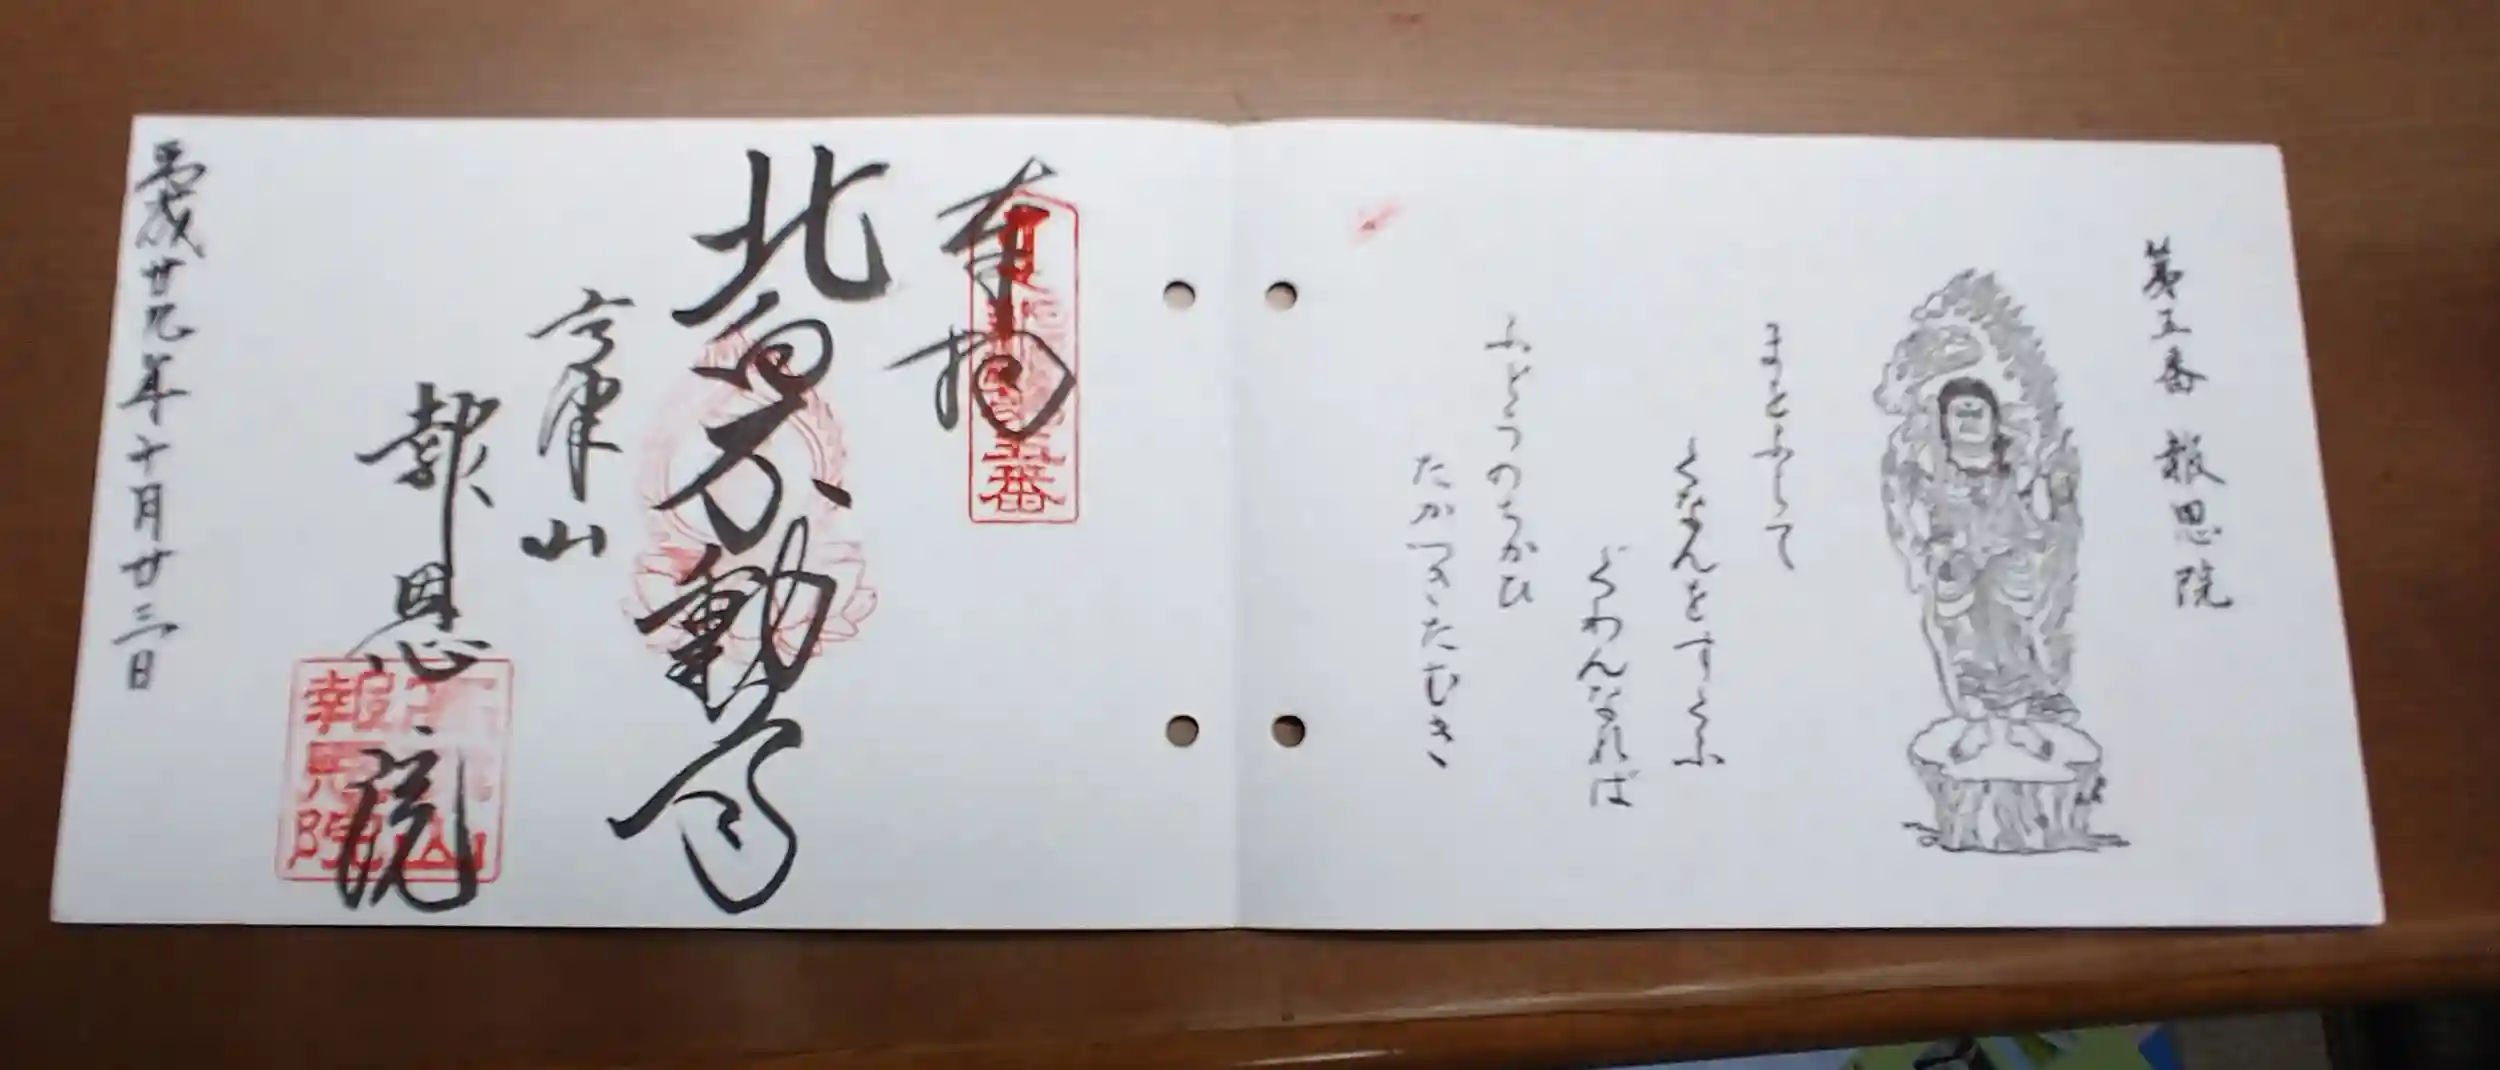 第五番 報恩院
まとふらて
くなんをすくふ
ぐわんなれば
ふどうのちかひ
たかつきたむき
奉拝
五番
北向不動尊
高津山
報恩院
山
報恩院
平成廿九年十月廿三日